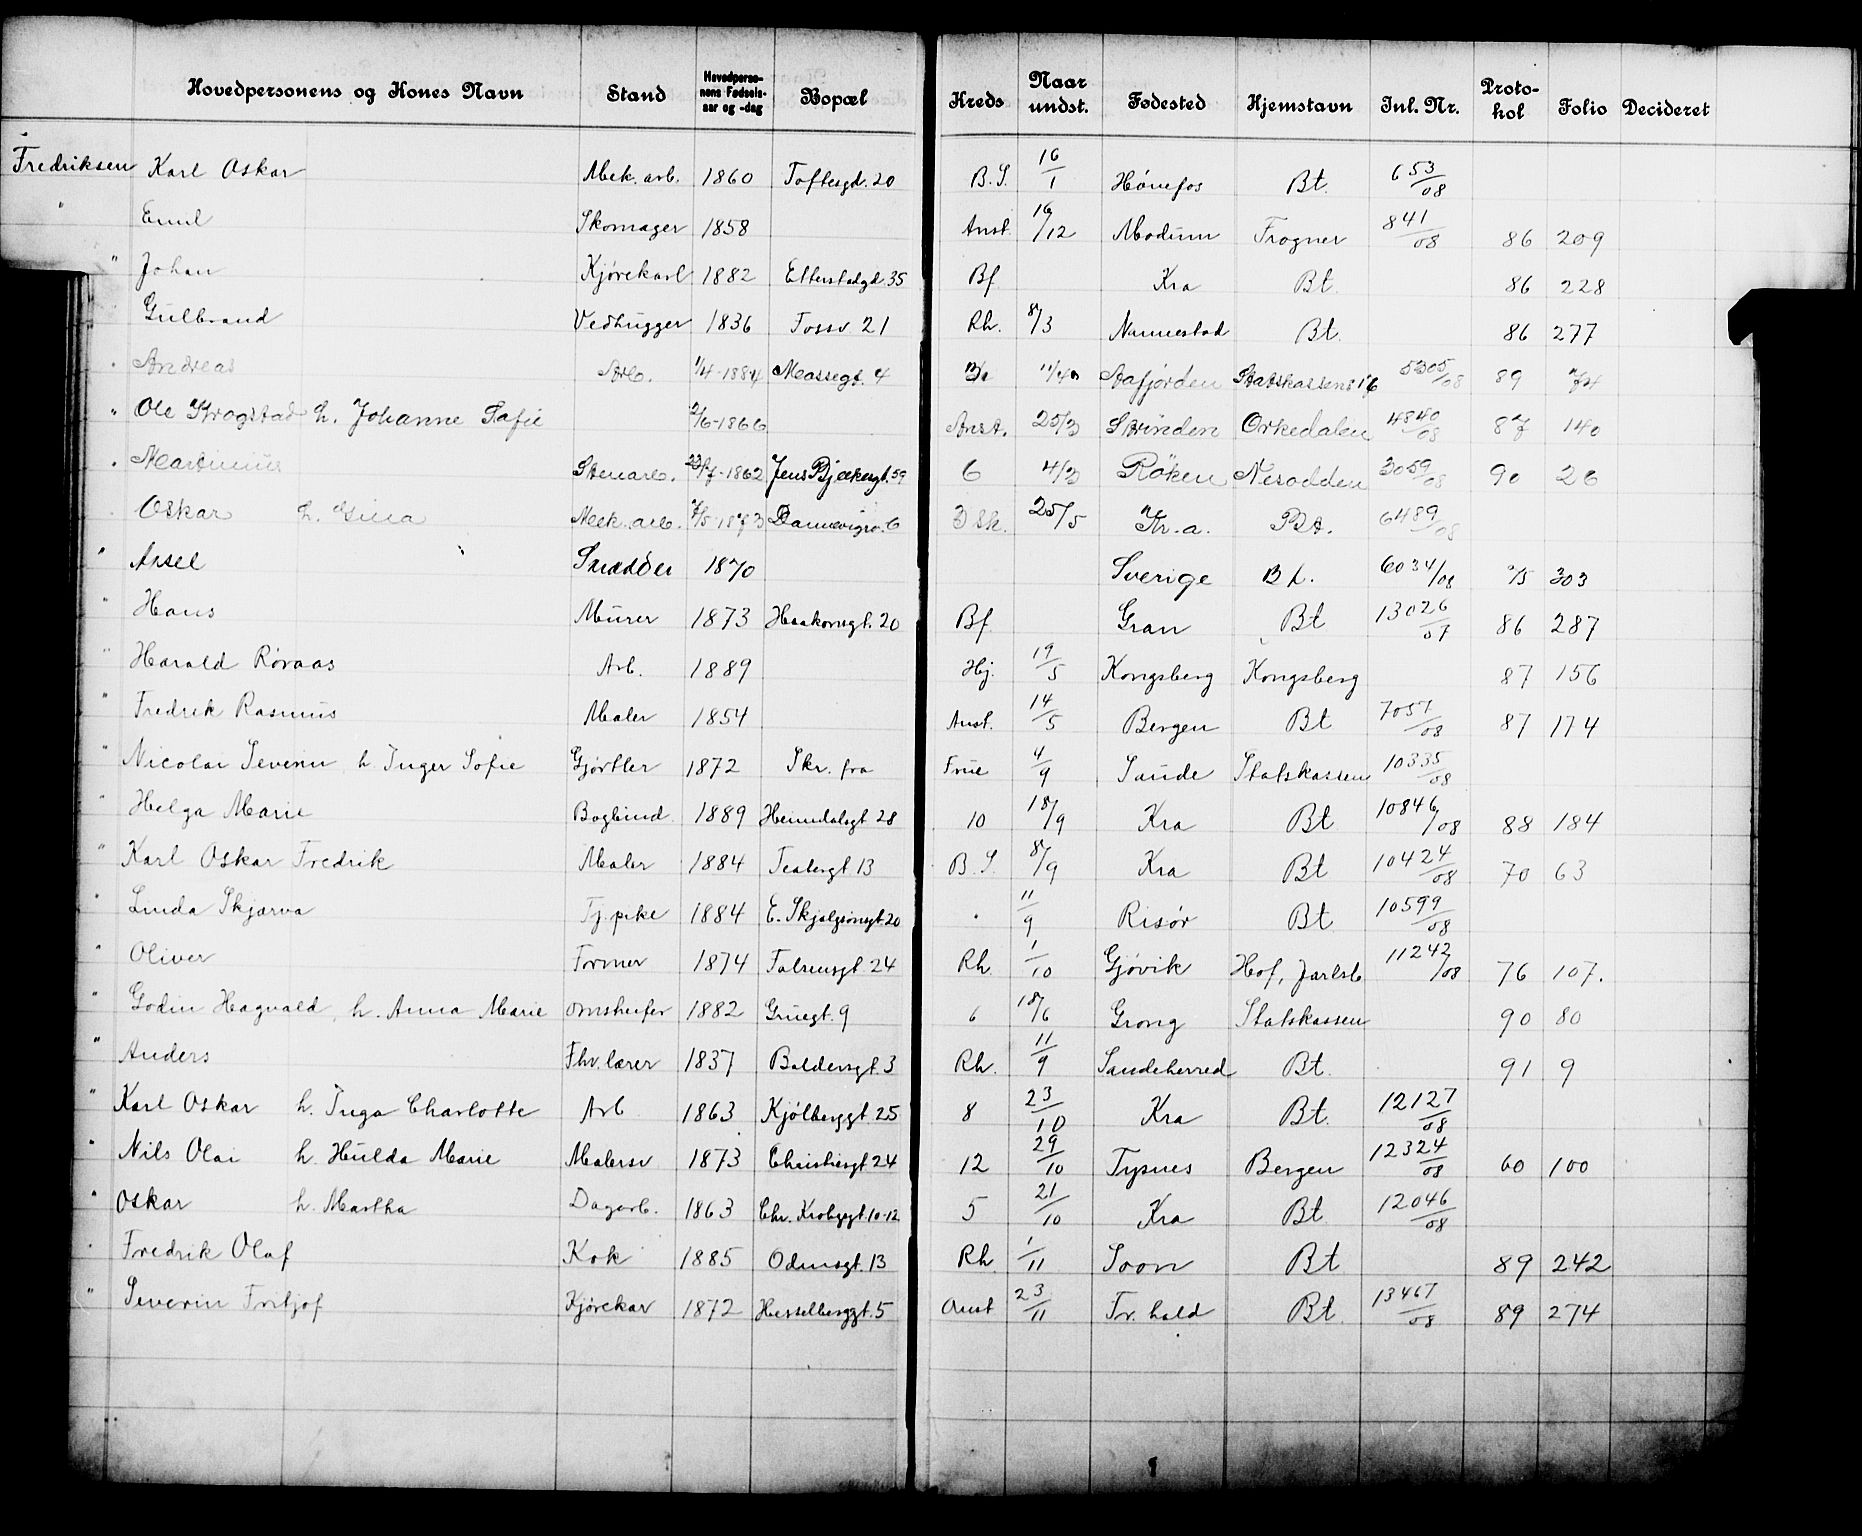 Hovedpersonens og Kones Navn Stand Hovedpersonens Fødselsaar og -dag Bopæl Kreds Naar undst. Fødested Hjemstavn Inl. Nr. Protokol Folio Decideret
Fredriksen Karl Oskar Mek. arb. 1860 Toftesgd. 20 B.S. 16/1 Hønefos Bt. 653/08
" Emil Skomager 1858 Anst. 16/12 Modum Frogner 841/08 86 209
" Johan Kjørekarl 1882 Etterstadgd. 35 Bf Kra Bt. 86 228
Gulbrand Vedhugger 1836 Fossv 21 Rh. 8/3 Nannestad Bt. 86 277
" Andreas Arb. 1/4-1884 Mossegt. 4 11/4 Aafjorden Statskassen 5305/08 89 74
" Ole Krogstad h. Johanne Sofie 2/6-1866 Anst. 25/3 Strinden Orkedalen 4840/08 87 140
" Martinius Stenarb. 23/7-1862 Jens Bjelkesgt. 59 6 4/3 Røken Nesodden 3059/08 90 26
Oskar h. Gina Mek. arb. 1873 Dannevigsv. 6 3 sk. 25/5 Kr.a. Bt. 6489/08
" Axel Skrædder 1870 Sverige Bt. 6034/08 303
" Hans Murer 1873 Haakonsgt. 20 Bf Gran Bt 13026/07 86 287
" Harald Røraas Arb. 1889 Hj. 19/5 Kongsberg Kongsberg 87 156
" Fredrik Rasmus Maler 1854 Anst. 14/5 Bergen Bt 7057/08 87 174
" Nicolai Severin h Inger Sofie Gjørtler 1872 Skr. fra Frue 4/9 Sande Statskassen 10335/08
" Helga Marie Bogbind. 1889 Heimdalsgt 28 10 18/9 Kra Bt 10846/08 88 184
" Karl Oskar Fredrik Maler 1884 Teatergt 13 B.S. 8/9 Kra Bt 10424/08 70 63
" Linda Skjærva Tj. pike 1884 E. Skjalgsonsgt 20 " 11/9 Risør Bt 10599/08
" Oliver Former 1874 Falsensgt 24 Rh. 1/10 Gjøvik Hof, Jarlsb 11242/08 76 107.
" Godin Hagvald, h. Anna Marie 1882 Gruegt. 9 6 18/6 Grong Statskassen 90 80
" Anders Fhv. lærer 1837 Baldersgt. 3 Rh. 11/9 Sandeherred Bt. 91 9
" Karl Oskar h. Inga Charlotte Arb 1863 Kjølberggt. 25 8 23/10 Kra Bt. 12127/08
" Nils Olai h. Hulda Marie Malersv 1873 Christiesgt 24 12 29/10 Tysnes Bergen 12324/08 60 100
" Oskar h. Martha Dagarb. 1863 Chr. Krohgsgt. 10-12 5 21/10 Kra Bt 12046/08
" Fredrik Olaf Kok 1885 Odinsgt. 13 Rh. 1/11 Soon Bt 89 242
" Severin Fritjof Kjørekar 1872 Hesselberggt. 5 Anst 23/11 Fr. hald Bt. 13467/08 89 274